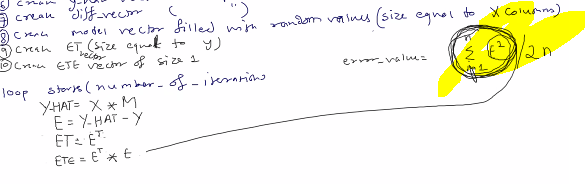 7) create diff-vector ( " )
8) create model vector filled with random values (size equal to X columns)
9) create ET vector (size equal to y)
10) create ETE vector of size 1
error_value = n Σ i=1 E² / 2n
loop starts (number_of_iterations
Y-HAT = X * M
E = Y-HAT - Y
ET = E^T
ETE = E^T * E